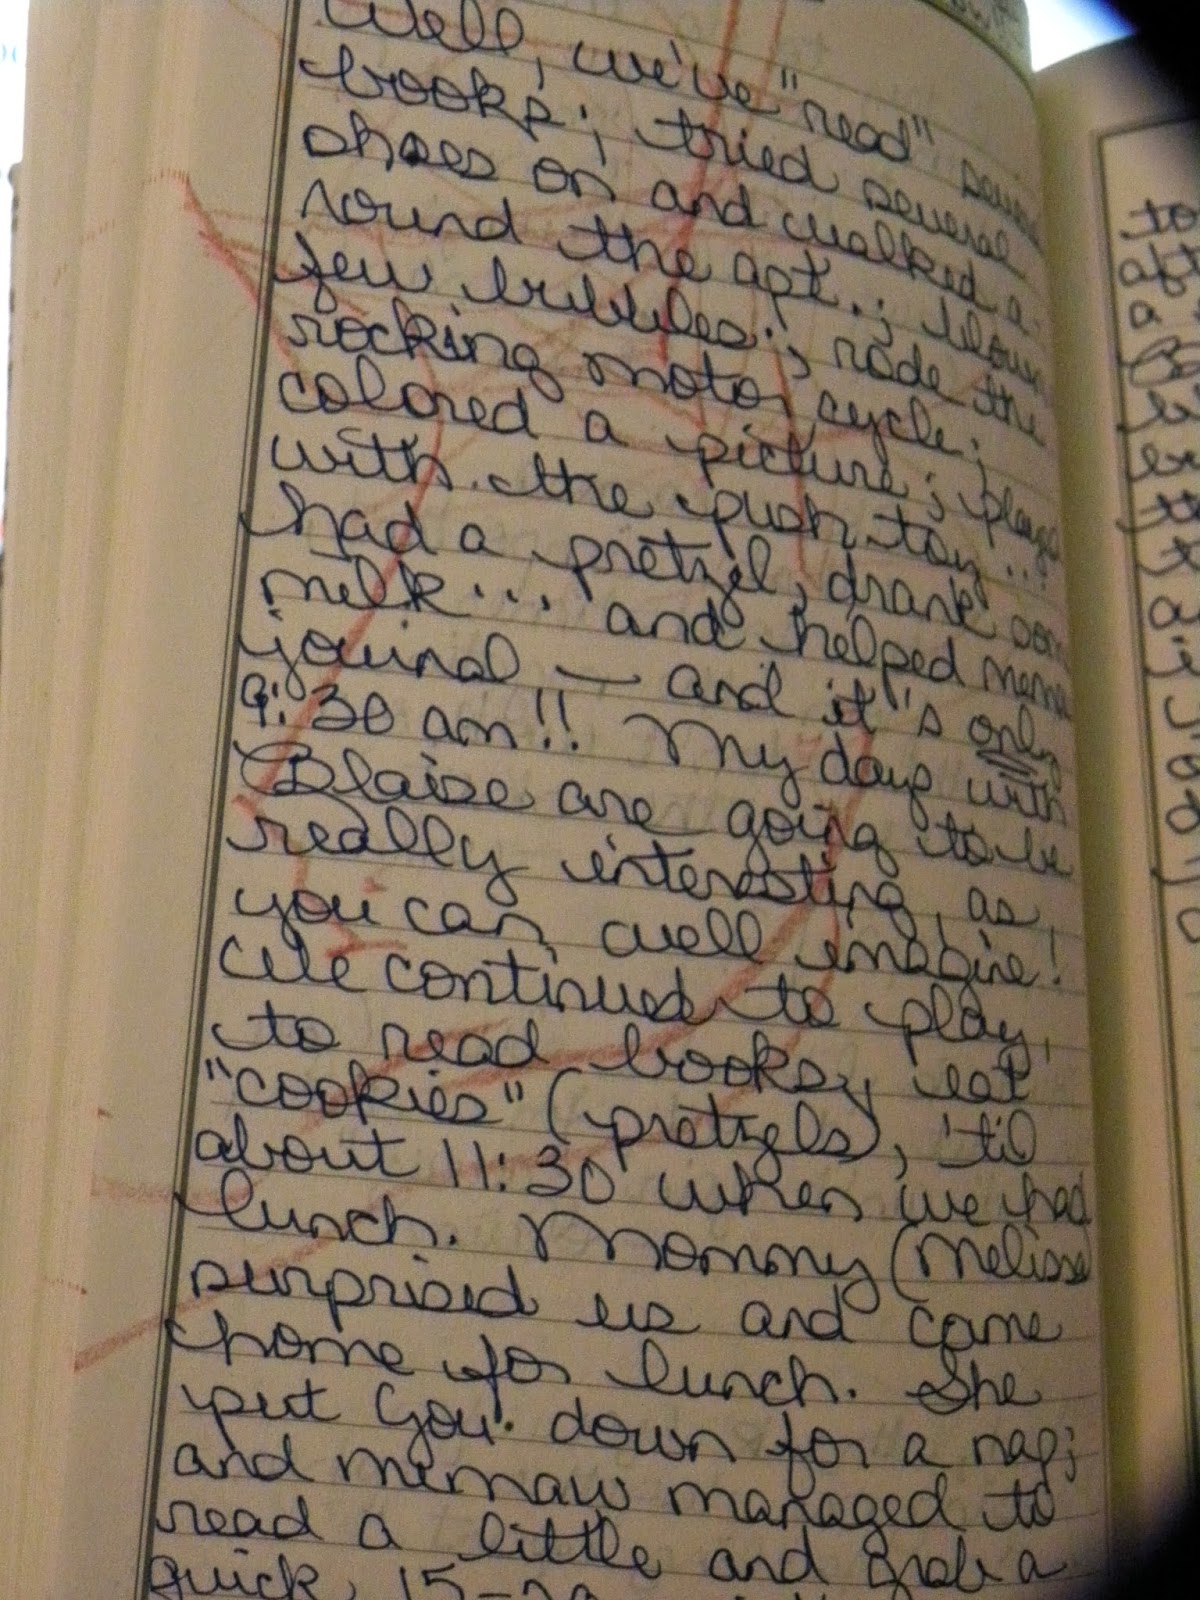 Well, we've "read" several
books; tried several
shoes on and walked a-
round the apt.; blown
few bubbles; rode the
rocking motor cycle;
colored a picture; played
with the push toy...;
had a pretzel, drank some
milk... and helped memaw
journal — and it's only
9:30 am!! My days with
Blaise are going to be
really interesting, as
you can well imagine!
We continued to play,
to read books, eat
"cookies" (pretzels), 'til
about 11:30 when we had
lunch. Mommy (Melissa
surprised us and came
home for lunch. She
put you down for a nap;
and memaw managed to
read a little and grab a
quick 15-20